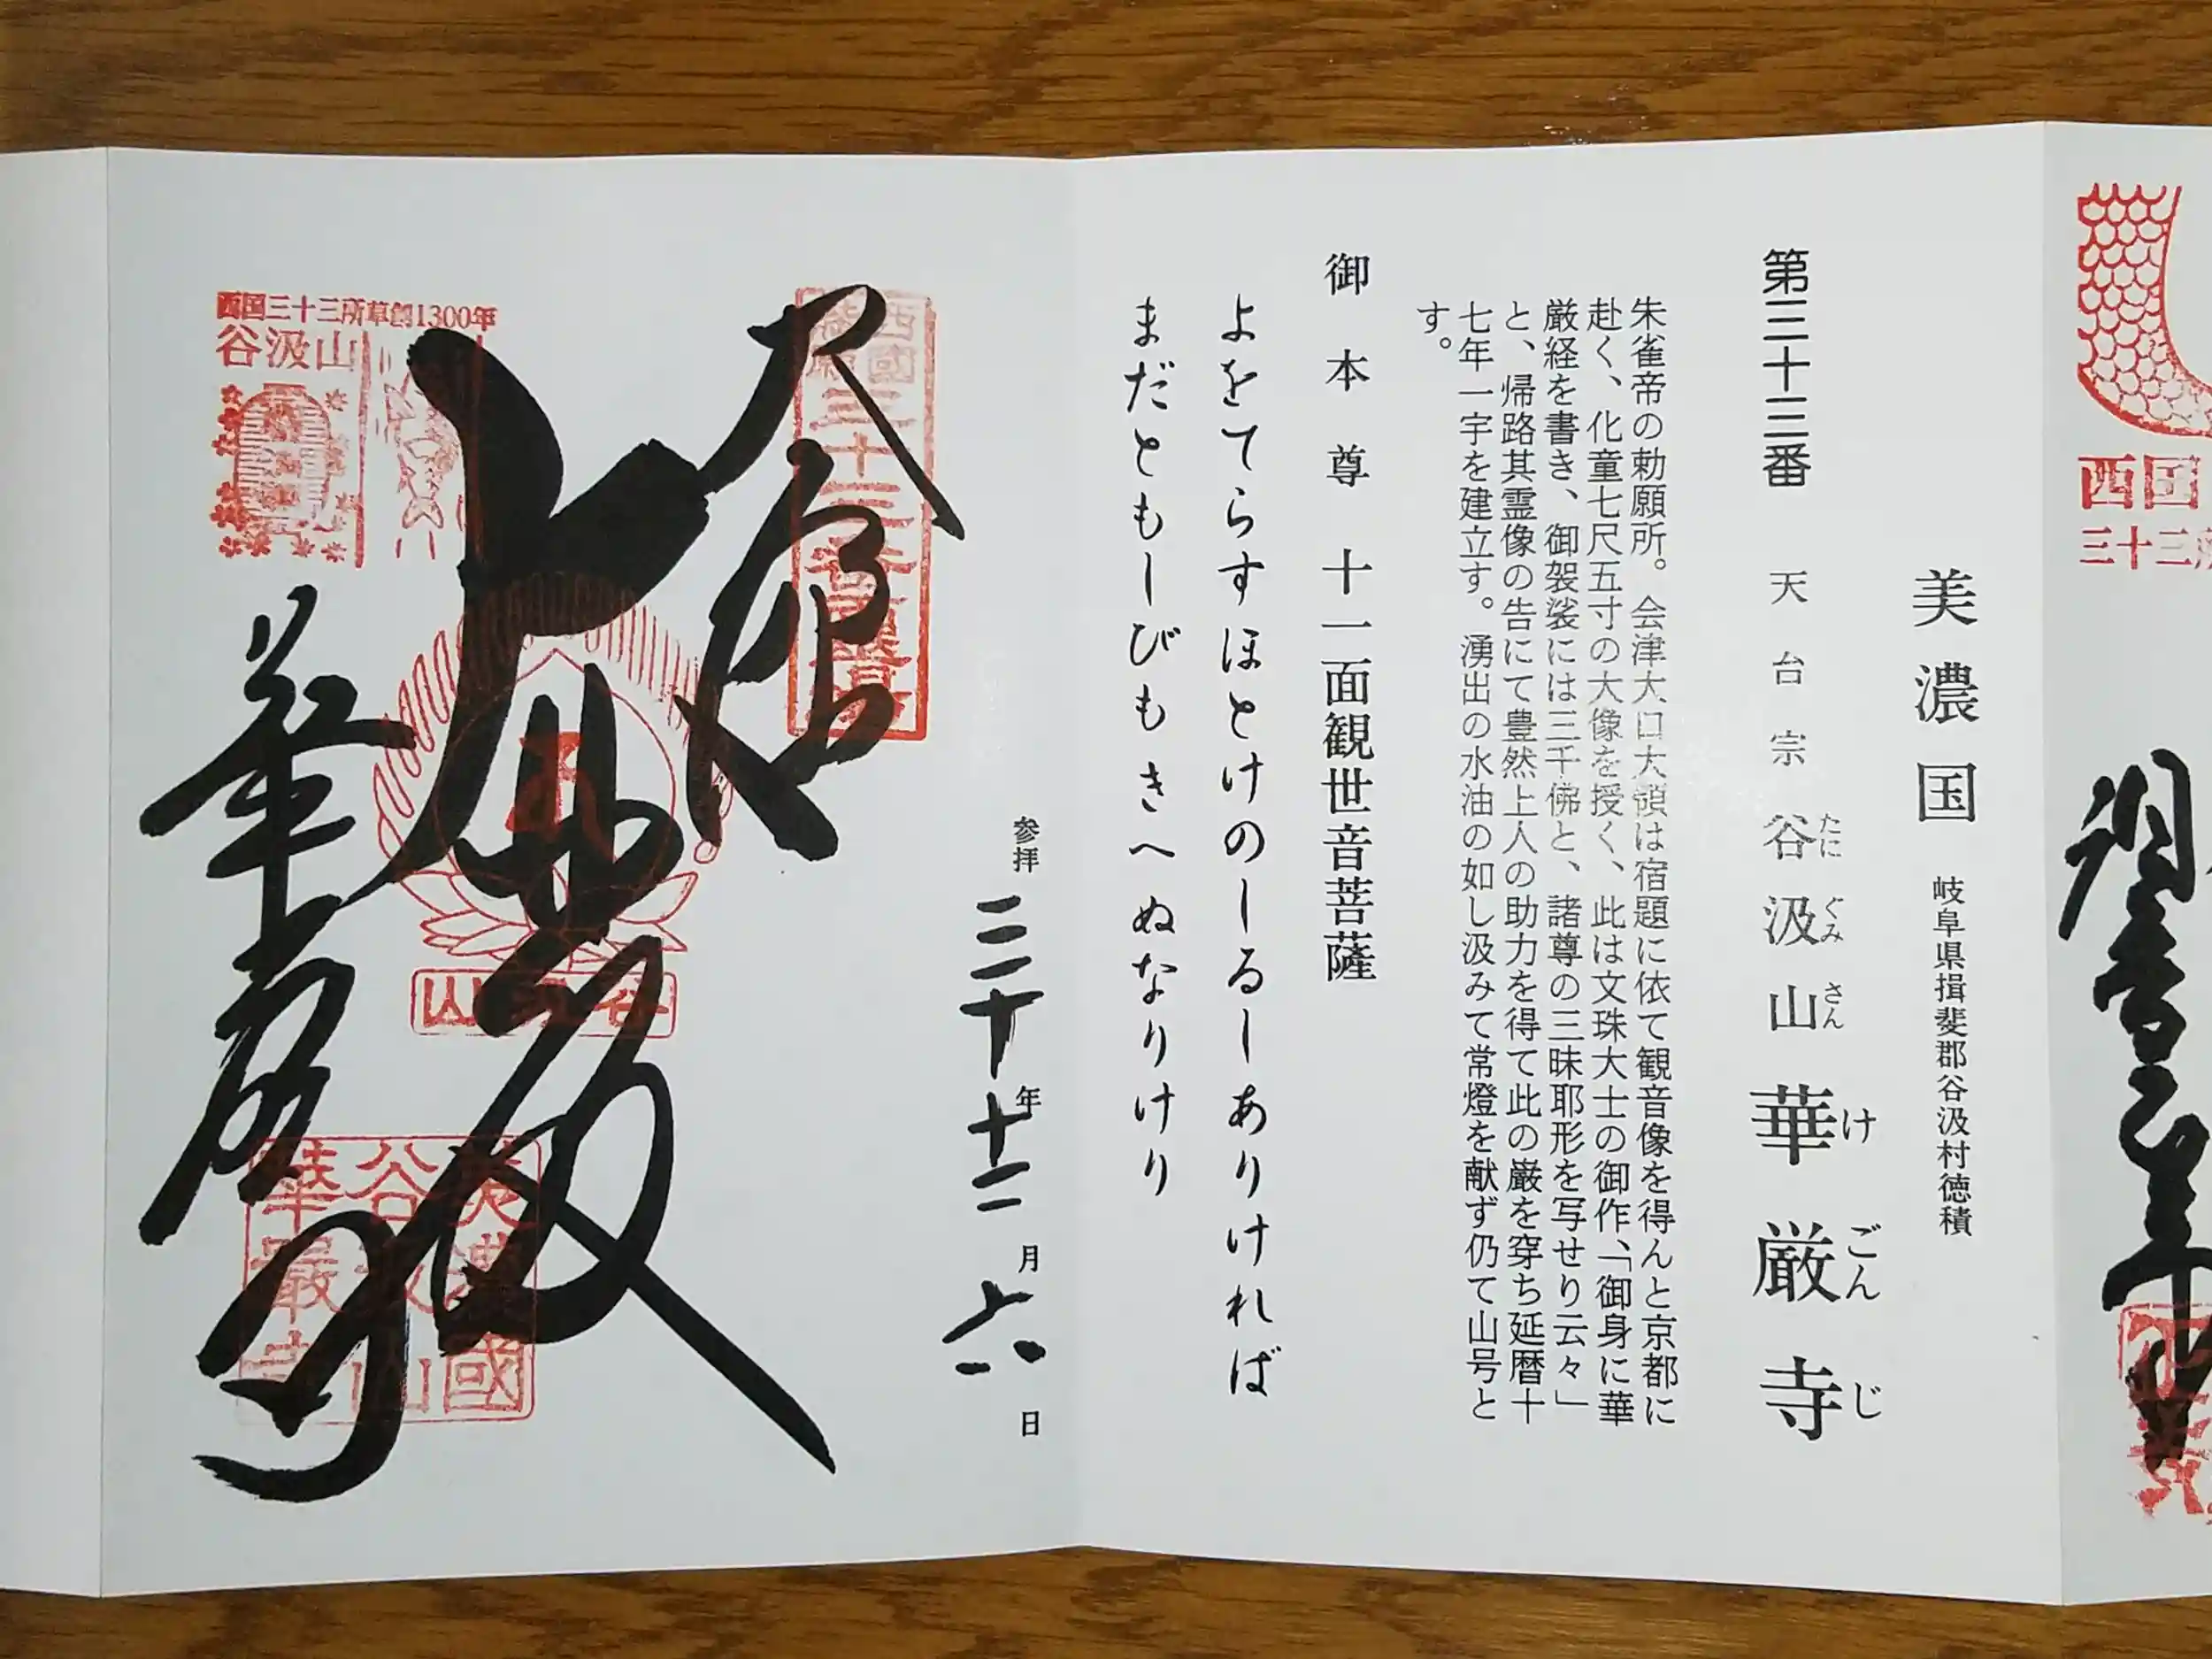 西国
三十三
美濃国 岐阜県揖斐郡谷汲村徳積
第三十三番 天台宗 谷汲山 華厳寺
たに ぐみ さん け ごん じ
朱雀帝の勅願所。会津大口大領は宿題に依て観音像を得んと京都に
赴く、化童七尺五寸の大像を授く、此は文珠大士の御作、「御身に華
厳経を書き、御袈裟には三千佛と、諸尊の三昧耶形を写せり云々」
と、帰路其霊像の告にて豊然上人の助力を得て此の巌を穿ち延暦十
七年一宇を建立す。湧出の水油の如し汲みて常燈を献ず仍て山号と
す。
御本尊 十一面観世音菩薩
よをてらすほとけのしるしありければ
まだともしびもきへぬなりけり
参拝 三十年十二月六日
西國
三十三
西国三十三所草創1300年
谷汲山
谷汲山
美濃國
谷汲山
華厳寺
華厳寺